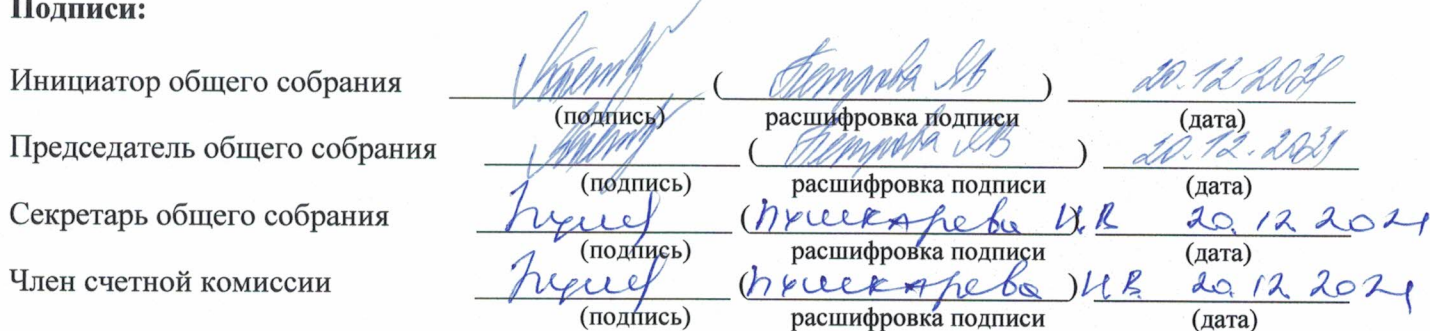 Подписи:
Инициатор общего собрания (Петрова ЯВ) 20.12.2021
(подпись) расшифровка подписи (дата)
Председатель общего собрания (Петрова ЯВ) 20.12.2021
(подпись) расшифровка подписи (дата)
Секретарь общего собрания (Пушкарева И.В) 20.12 2021
(подпись) расшифровка подписи (дата)
Член счетной комиссии (Пушкарева) И.В. 20.12 2021
(подпись) расшифровка подписи (дата)